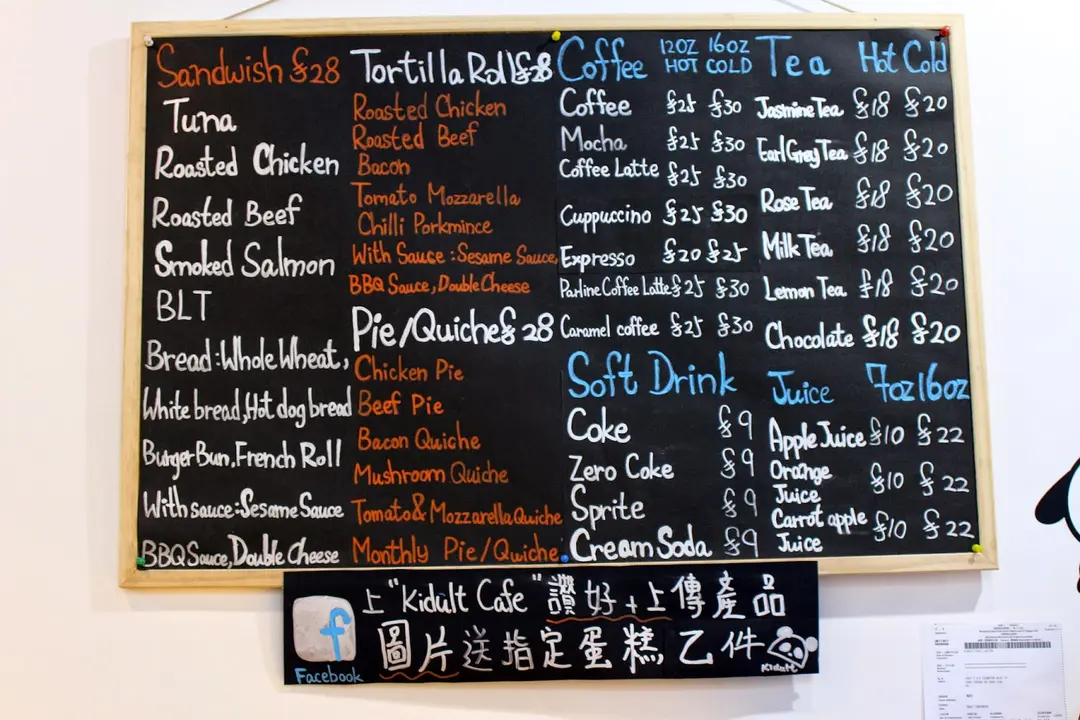 Sandwish £28
Tuna
Roasted Chicken
Roasted Beef
Smoked Salmon
BLT
Bread:Whole Wheat,
White bread,Hot dog bread
Burger Bun,French Roll
With sauce:Sesame Sauce
BBQ Sauce,Double Cheese
Tortilla Roll £28
Roasted Chicken
Roasted Beef
Bacon
Tomato Mozzarella
Chilli Porkmince
With Sauce:Sesame Sauce,
BBQ Sauce,Double Cheese
Pie/Quiche £28
Chicken Pie
Beef Pie
Bacon Quiche
Mushroom Quiche
Tomato & Mozzarella Quiche
Monthly Pie/Quiche
Coffee 12OZ HOT 16OZ COLD
Coffee £25 £30
Mocha £25 £30
Coffee Latte £25 £30
Cuppuccino £25 £30
Expresso £20 £25
Parline Coffee Latte £25 £30
Caramel coffee £25 £30
Soft Drink
Coke £9
Zero Coke £9
Sprite £9
Cream Soda £9
Tea Hot Cold
Jasmine Tea £18 £20
Earl Grey Tea £18 £20
Rose Tea £18 £20
Milk Tea £18 £20
Lemon Tea £18 £20
Chocolate £18 £20
Juice 7oz 16oz
Apple Juice £10 £22
Orange Juice £10 £22
Carrot apple Juice £10 £22
上"Kidult Cafe"讚好+上傳產品
圖片送指定蛋糕乙件
Facebook
Kidult